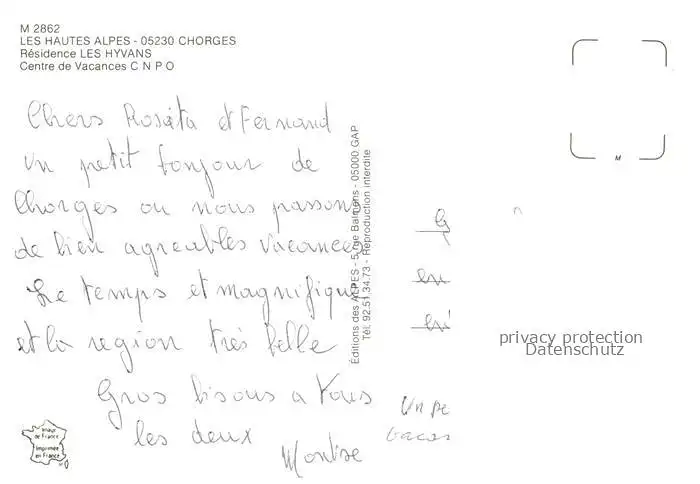 M 2862
LES HAUTES ALPES - 05230 CHORGES
Résidence LES HYVANS
Centre de Vacances C N P O
Chers Rosita et Fernand
un petit bonjour de
Chorges ou nous passons
de bien agreables vacances
Le temps et magnifique
et la region très belle
Gros bisous a vous
les deux
Éditions des ALPES - 5, rue - 05000 GAP
Tél. 92.51.34.73 - Reproduction interdite
M
Un
privacy protection
Datenschutz
Image
de France
Imprimée
en France